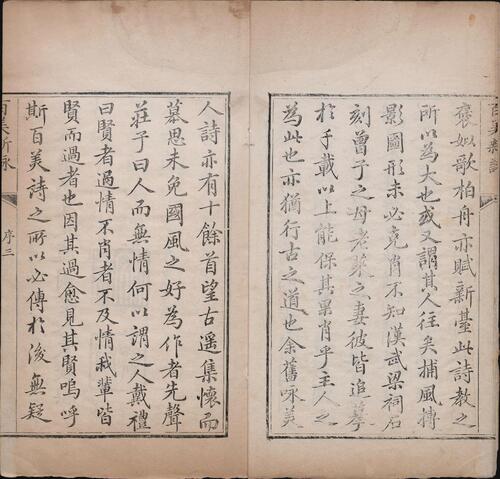 褒姒歌柏舟亦賦新臺此詩教之
所以為大也或又謂其人往矣捕風摶
影圖形未必克肖不知漢武梁祠石
刻曾子之母老萊之妻彼皆追摹
於千載以上能保其果肖乎主人之
為此也亦猶行古之道也余舊咏美
人詩亦有十餘首望古遥集懷而
慕思未免國風之好為作者先聲
莊子曰人而無情何以謂之人戴禮
曰賢者過情不肖者不及情我輩皆
賢而過者也因其過愈見其賢嗚呼
斯百美詩之所以必傳於後無疑
百美新詠
序三